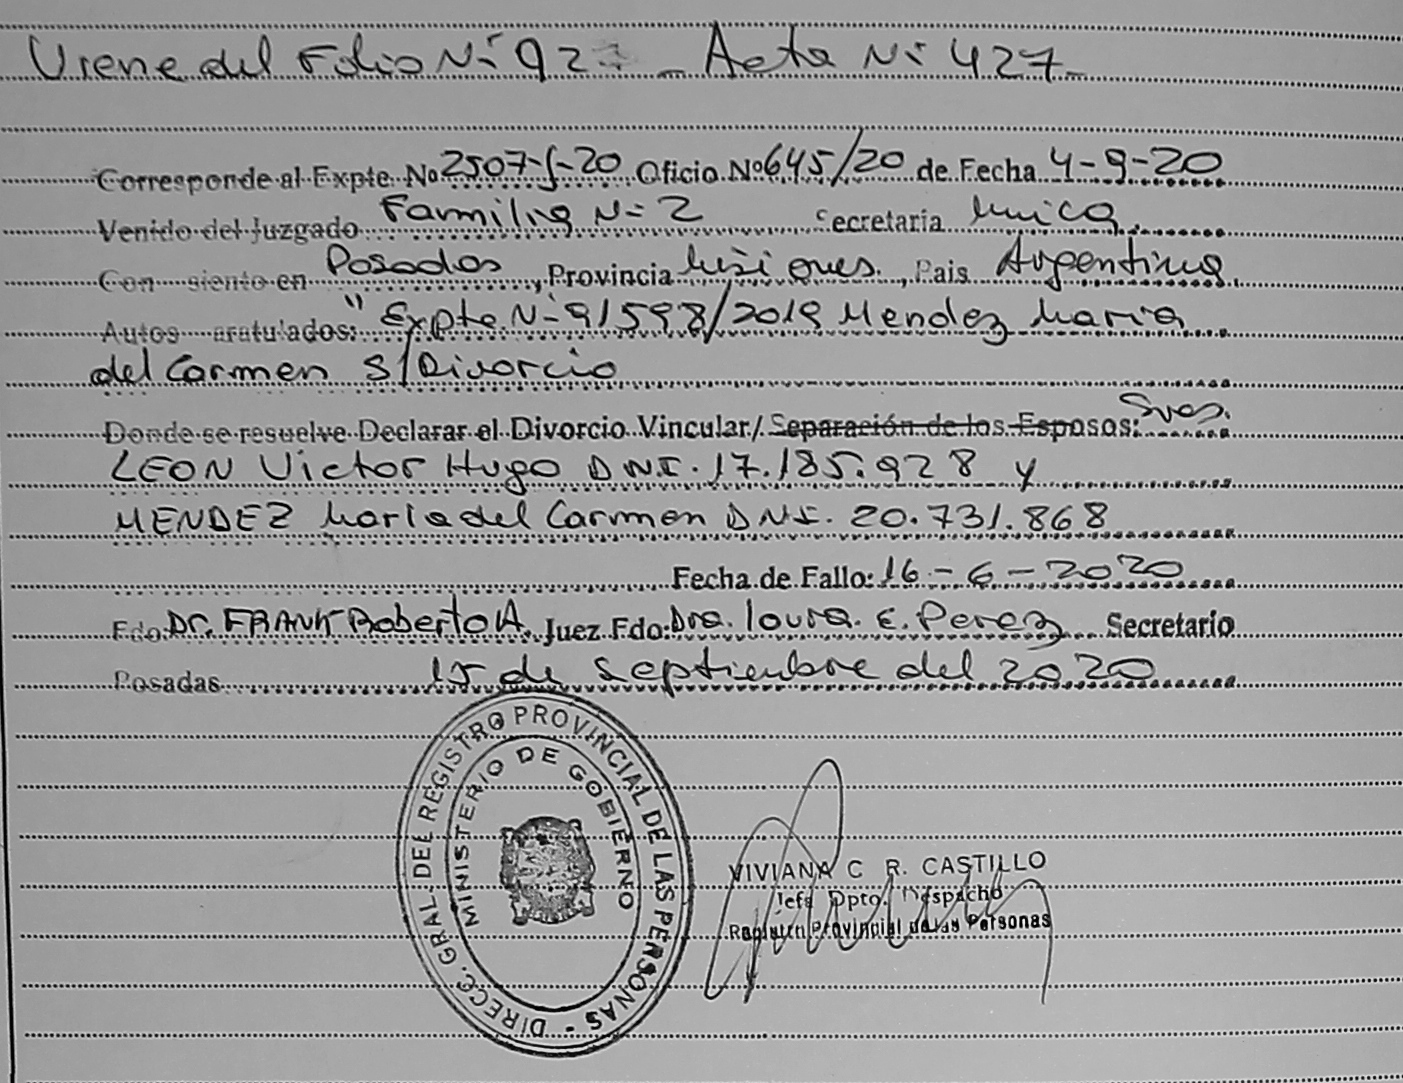 Viene del Folio Nº 92 - Acta Nº 427-
Corresponde al Expte. Nº 2507-S-20 Oficio Nº 645/20 de Fecha 4-9-20
Venido del Juzgado Familia Nº 2 Secretaria Unica
Con siento en Posadas, Provincia Misiones, Pais Argentina
Autos aratulados: "Expte. Nº 91598/2019 Mendez Maria
del Carmen S/Divorcio
Donde se resuelve Declarar el Divorcio Vincular/ Separación de los Esposos: Sres.
LEON Victor Hugo DNI. 17.185.928 y
MENDEZ Maria del Carmen DNI. 20.731.868
Fecha de Fallo: 16-6-2020
Fdo: Dr. FRANK Roberto A. Juez Fdo: Dra. laura. E. Perez Secretario
Posadas 15 de Septiembre del 2020
DIRECC. GRAL. DEL REGISTRO PROVINCIAL DE LAS PERSONAS -
MINISTERIO DE GOBIERNO
VIVIANA C R. CASTILLO
Jefe Dpto. Despacho
Registro Provincial de las Personas